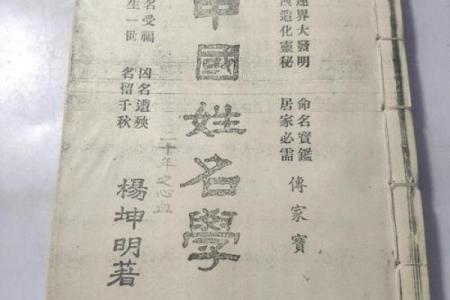 界大發明
造化靈秘
命名寶鑑
居家必需
傳家寶
中國姓名學
二十年之心血
名受福
生一世
凶名遺殃
名留千秋
楊坤明著